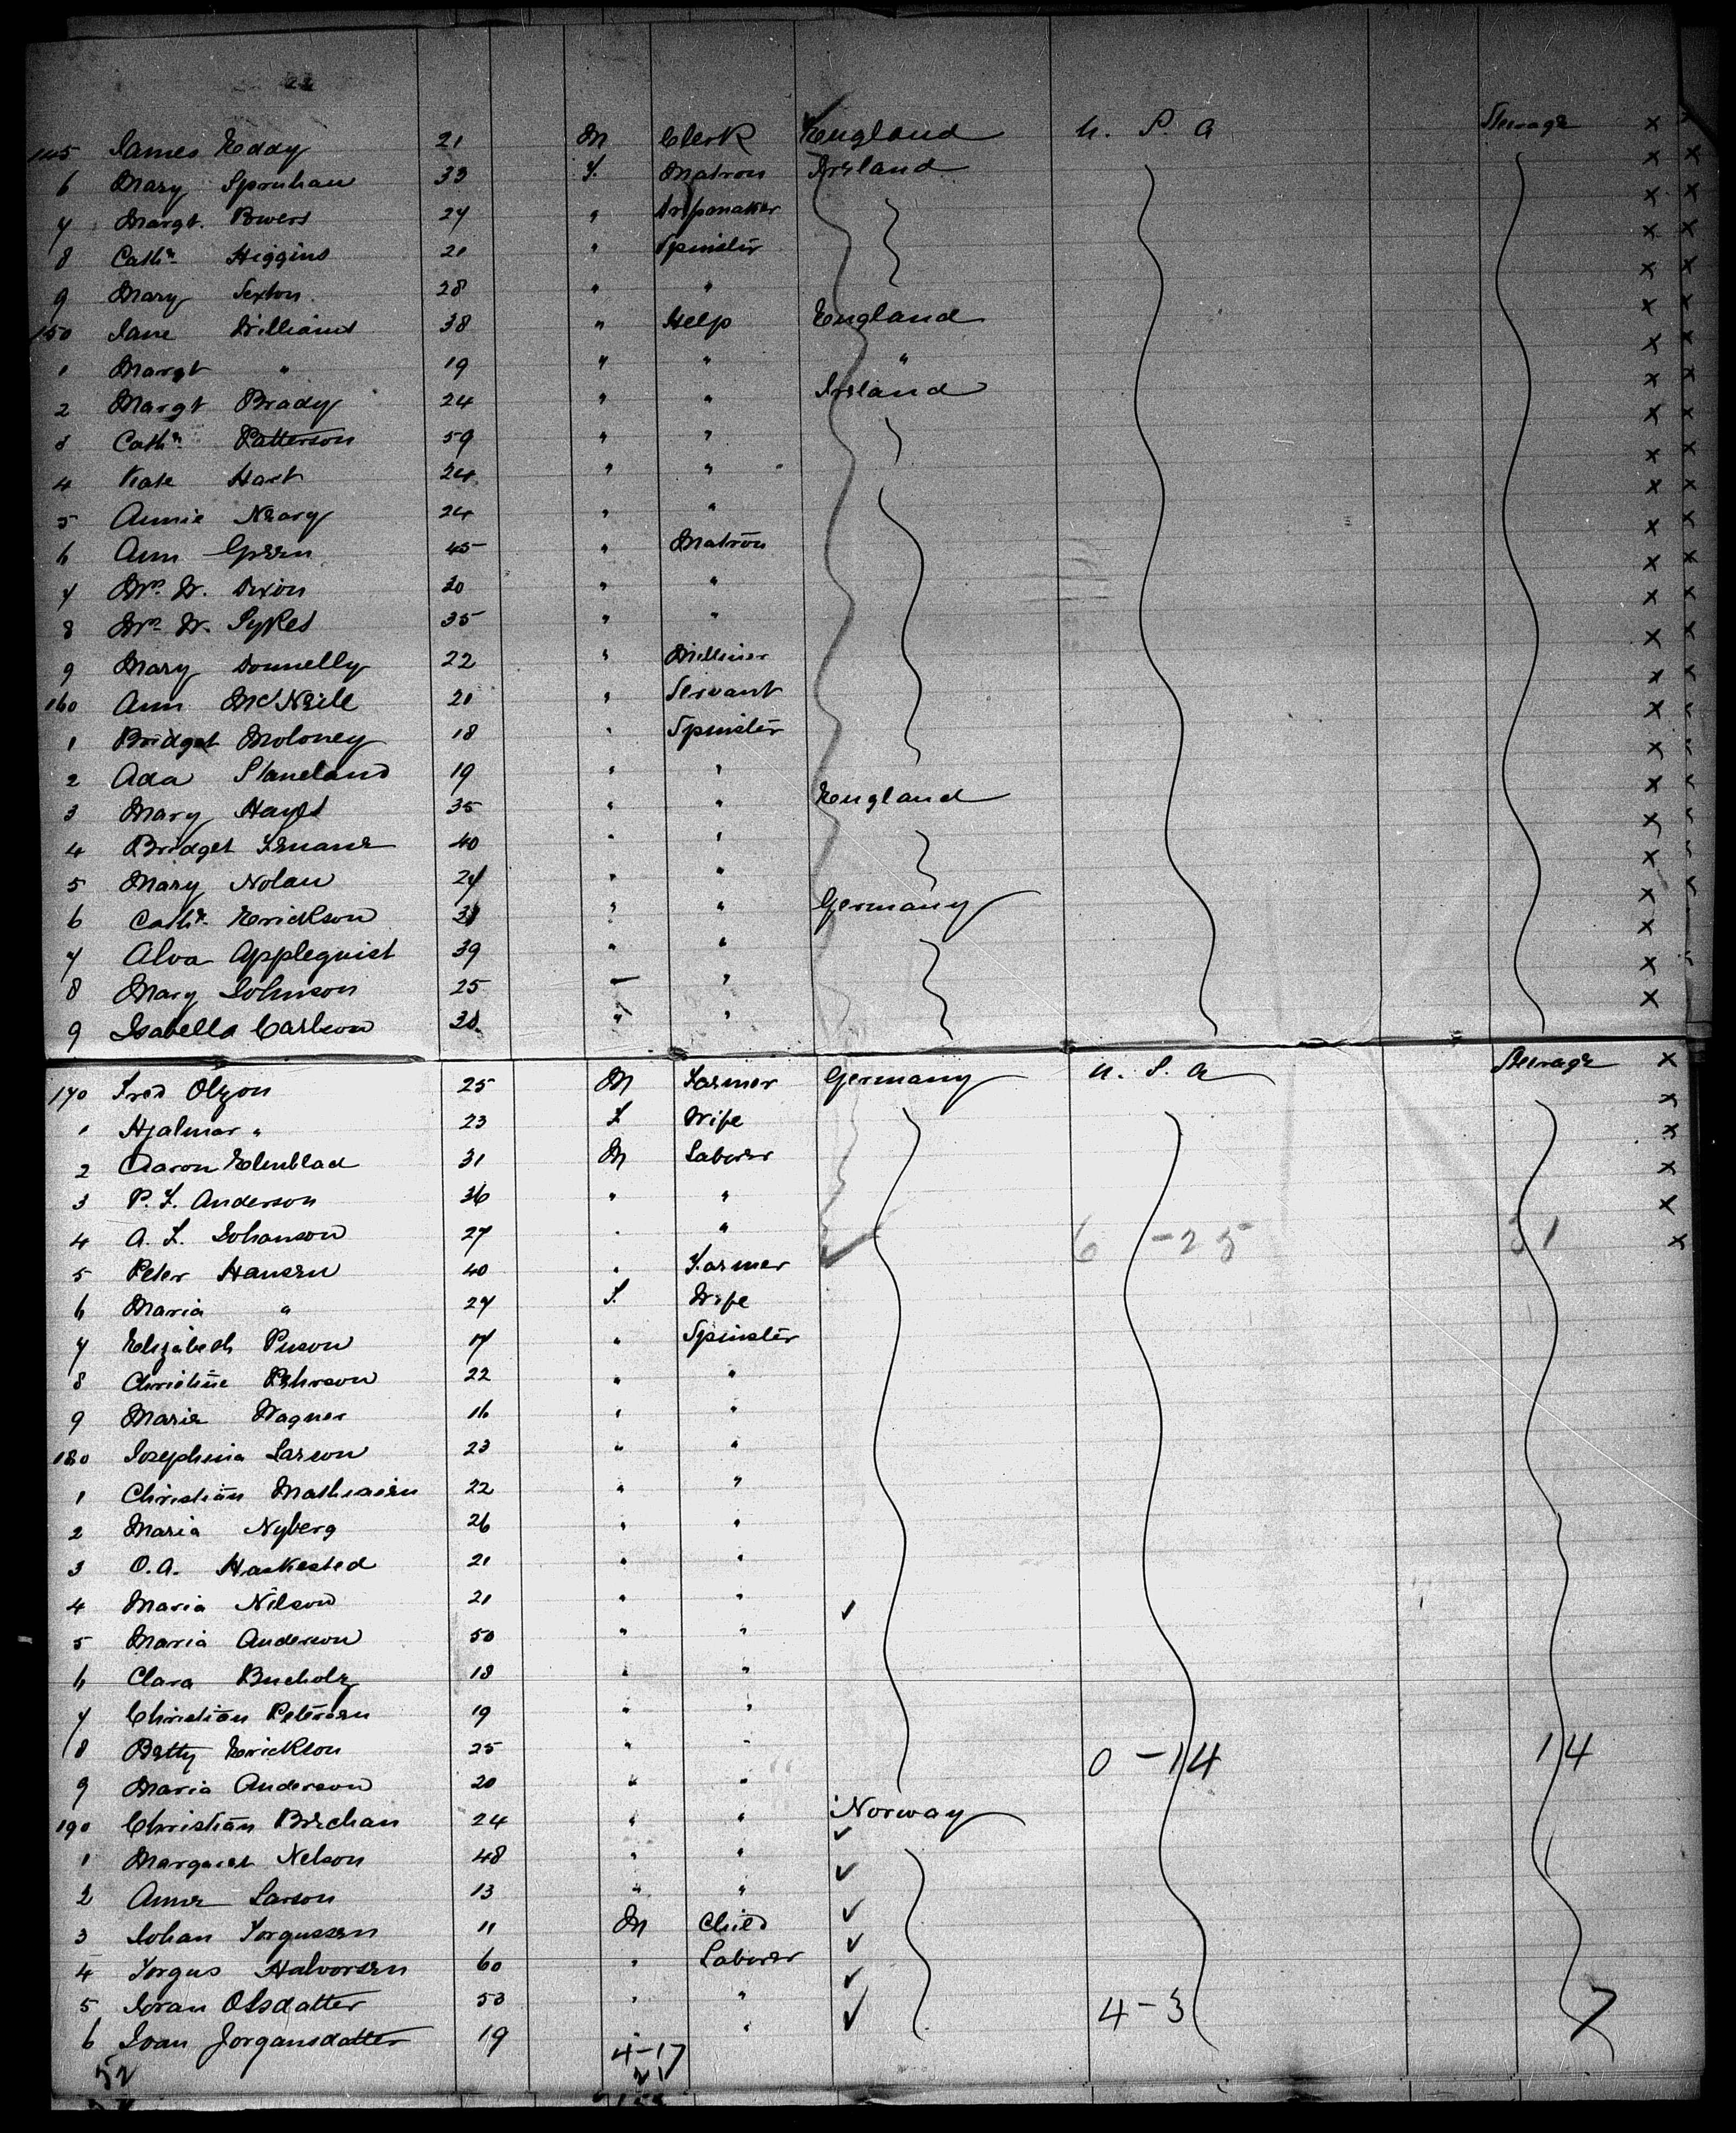 145 James Eddy 21 M Clerk England U. S. A Steerage x x
6 Mary Spruhan 33 F. Matron Ireland x x
7 Margt. Powers 27 " x x
8 Cathn Higgins 21 " Spinster x x
9 Mary Sexton 28 " " x x
150 Jane Williams 38 " Help England x x
1 Margt " 19 " " " x x
2 Margt Brady 24 " " Ireland x x
3 Cathn Patterson 59 " " x x
4 Kate Hart 24 " " x x
5 Annie Neary 24 " " x x
6 Ann Green 45 " Matron x x
7 Mrs W. Dixon 30 " " x x
8 Mrs W. Sykes 35 " " x x
9 Mary Donnelly 22 " Milliner x x
160 Ann McNeile 21 " Servant x x
1 Bridget Moloney 18 " Spinster x x
2 Ada Staneland 19 " " x x
3 Mary Hayes 35 " " England x x
4 Bridget 40 " " x x
5 Mary Nolan 27 " " x x
6 Cathn Erickson 31 " " Germany x x
7 Alva Applequist 39 " " x
8 Mary Johnson 25 " " x x
9 Isabella Carlson 30 " " x
170 Fred Olzon 25 M Farmer Germany U. S. A Steerage x
1 Hjalmar " 23 F Wife x
2 Aaron Elmblad 31 M Laborer x
3 P. F. Anderson 36 " " x
4 A. F. Johanson 27 " " 6 - 25 31 x
5 Peter Hansen 40 " Farmer x
6 Maria " 27 F. Wife
7 Elizabeth 17 " Spinster
8 Christine Pehrson 22 " "
9 Maria Wagner 16 " "
180 Josephina Larson 23 " "
1 Christian Mathiasen 22 " "
2 Maria Nyberg 26 " "
3 O. A. Haskested 21 " "
4 Maria Nilson 21 " " ✓
5 Maria Anderson 50 " "
6 Clara Bucholz 18 " "
7 Christian Petersen 19 " "
8 Betty Erickson 25 " " 0 - 14 14
9 Maria Anderson 20 " "
190 Christian Brechan 24 " " Norway ✓
1 Margaret Nelson 48 " " ✓
2 Anne Larson 13 " " ✓
3 Johan Torgussen 11 M Child ✓
4 Torgus Halvorsen 60 " Laborer ✓
5 Joran Olsdatter 53 " " ✓ 4 - 3 7
6 Joan Jorgansdatter 19 " "
52 4-17
21